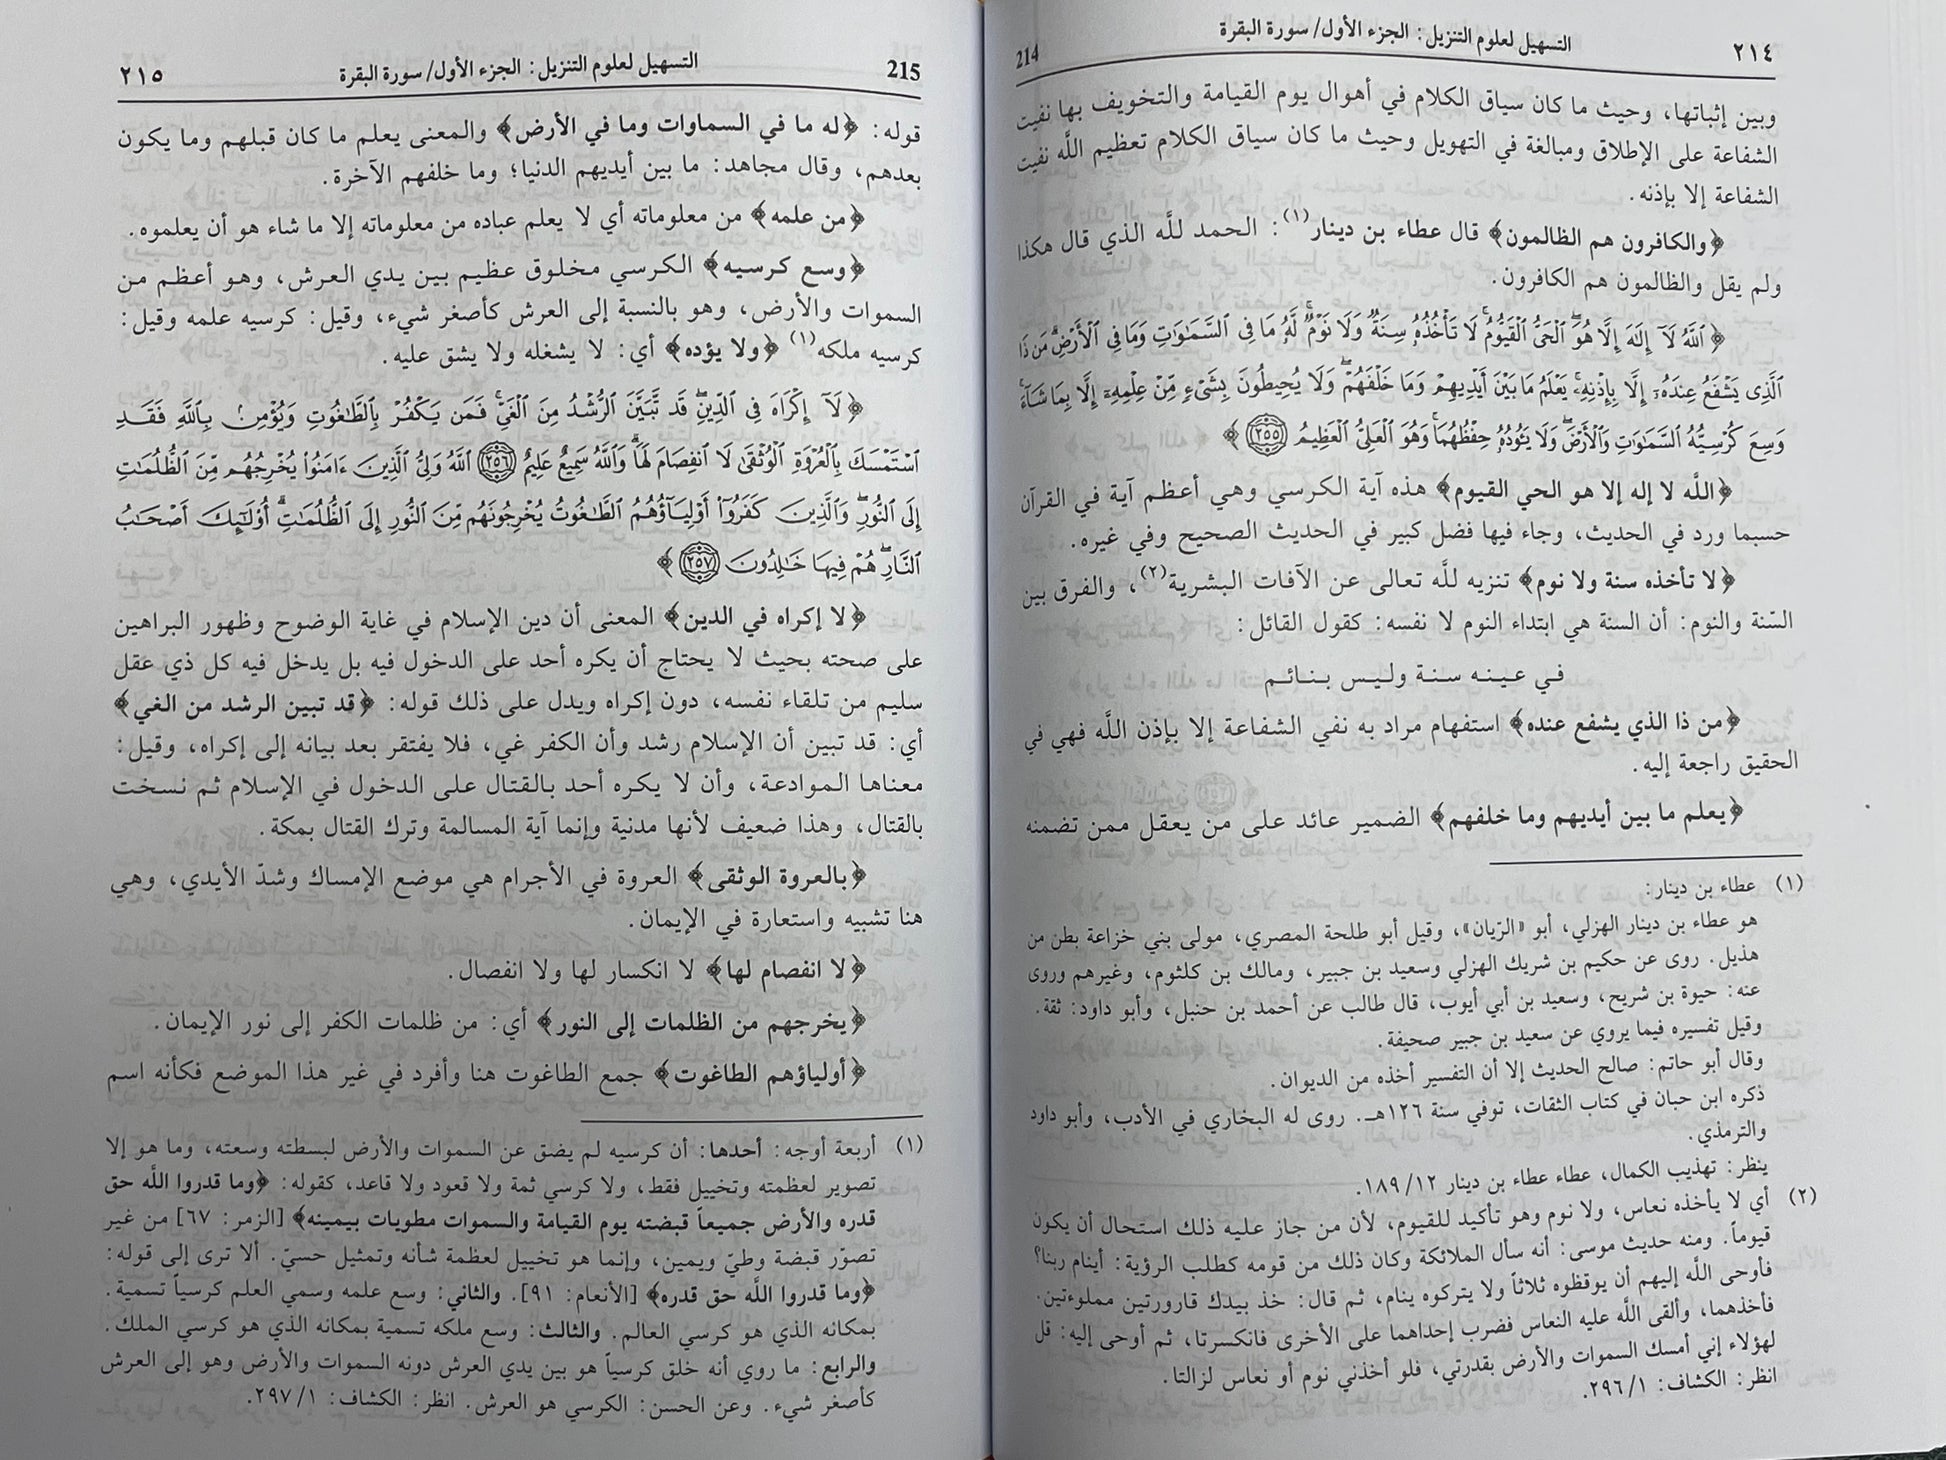 ٢١٤
التسهيل لعلوم التنزيل: الجزء الأول/ سورة البقرة
214
وبين إثباتها، وحيث ما كان سياق الكلام في أهوال يوم القيامة والتخويف بها نفيت
الشفاعة على الإطلاق ومبالغة في التهويل وحيث ما كان سياق الكلام تعظيم اللَّه نفيت
الشفاعة إلا بإذنه.
﴿والكافرون هم الظالمون﴾ قال عطاء بن دينار(١): الحمد للَّه الذي قال هكذا
ولم يقل والظالمون هم الكافرون.
﴿ ٱللَّهُ لَآ إِلَٰهَ إِلَّا هُوَ ٱلْحَىُّ ٱلْقَيُّومُۚ لَا تَأْخُذُهُۥ سِنَةٌ وَلَا نَوْمٌۚ لَّهُۥ مَا فِى ٱلسَّمَٰوَٰتِ وَمَا فِى ٱلْأَرْضِۗ مَن ذَا
ٱلَّذِى يَشْفَعُ عِندَهُۥٓ إِلَّا بِإِذْنِهِۦۚ يَعْلَمُ مَا بَيْنَ أَيْدِيهِمْ وَمَا خَلْفَهُمْۖ وَلَا يُحِيطُونَ بِشَىْءٍ مِّنْ عِلْمِهِۦٓ إِلَّا بِمَا شَآءَۚ
وَسِعَ كُرْسِيُّهُ ٱلسَّمَٰوَٰتِ وَٱلْأَرْضَۖ وَلَا يَـُٔودُهُۥ حِفْظُهُمَاۚ وَهُوَ ٱلْعَلِىُّ ٱلْعَظِيمُ ٢٥٥ ﴾
﴿اللَّه لا إله إلا هو الحي القيوم﴾ هذه آية الكرسي وهي أعظم آية في القرآن
حسبما ورد في الحديث، وجاء فيها فضل كبير في الحديث الصحيح وفي غيره.
﴿لا تأخذه سنة ولا نوم﴾ تنزيه للَّه تعالى عن الآفات البشرية(٢)، والفرق بين
السّنة والنوم: أن السنة هي ابتداء النوم لا نفسه: كقول القائل:
في عينه سنة وليس بنائم
﴿من ذا الذي يشفع عنده﴾ استفهام مراد به نفي الشفاعة إلا بإذن اللَّه فهي في
الحقيق راجعة إليه.
﴿يعلم ما بين أيديهم وما خلفهم﴾ الضمير عائد على من يعقل ممن تضمنه
(١) عطاء بن دينار:
هو عطاء بن دينار الهزلي، أبو «الرّيان»، وقيل أبو طلحة المصري، مولى بني خزاعة بطن من
هذيل. روى عن حكيم بن شريك الهزلي وسعيد بن جبير، ومالك بن كلثوم، وغيرهم وروى
عنه: حيوة بن شريح، وسعيد بن أبي أيوب، قال طالب عن أحمد بن حنبل، وأبو داود: ثقة.
وقيل تفسيره فيما يروي عن سعيد بن جبير صحيفة.
وقال أبو حاتم: صالح الحديث إلا أن التفسير أخذه من الديوان.
ذكره ابن حبان في كتاب الثقات، توفي سنة ١٢٦هـ. روى له البخاري في الأدب، وأبو داود
والترمذي.
ينظر: تهذيب الكمال، عطاء عطاء بن دينار ١٨٩/١٢.
(٢) أي لا يأخذه نعاس، ولا نوم وهو تأكيد للقيوم، لأن من جاز عليه ذلك استحال أن يكون
قيوماً. ومنه حديث موسى: أنه سأل الملائكة وكان ذلك من قومه كطلب الرؤية: أينام ربنا؟
فأوحى اللَّه إليهم أن يوقظوه ثلاثاً ولا يتركوه ينام، ثم قال: خذ بيدك قارورتين مملوءتين.
فأخذهما، وألقى اللَّه عليه النعاس فضرب إحداهما على الأخرى فانكسرتا، ثم أوحى إليه: قل
لهؤلاء إني أمسك السموات والأرض بقدرتي، فلو أخذني نوم أو نعاس لزالتا.
انظر: الكشاف: ٢٩٦/١.
215
التسهيل لعلوم التنزيل: الجزء الأول/ سورة البقرة
٢١٥
قوله: ﴿له ما في السماوات وما في الأرض﴾ والمعنى يعلم ما كان قبلهم وما يكون
بعدهم، وقال مجاهد: ما بين أيديهم الدنيا؛ وما خلفهم الآخرة.
﴿من علمه﴾ من معلوماته أي لا يعلم عباده من معلوماته إلا ما شاء هو أن يعلموه.
﴿وسع كرسيه﴾ الكرسي مخلوق عظيم بين يدي العرش، وهو أعظم من
السموات والأرض، وهو بالنسبة إلى العرش كأصغر شيء، وقيل: كرسيه علمه وقيل:
كرسيه ملكه(١) ﴿ولا يؤده﴾ أي: لا يشغله ولا يشق عليه.
﴿ لَآ إِكْرَاهَ فِى ٱلدِّينِۖ قَد تَّبَيَّنَ ٱلرُّشْدُ مِنَ ٱلْغَىِّۚ فَمَن يَكْفُرْ بِٱلطَّٰغُوتِ وَيُؤْمِنۢ بِٱللَّهِ فَقَدِ
ٱسْتَمْسَكَ بِٱلْعُرْوَةِ ٱلْوُثْقَىٰ لَا ٱنفِصَامَ لَهَاۗ وَٱللَّهُ سَمِيعٌ عَلِيمٌ ٢٥٦ ٱللَّهُ وَلِىُّ ٱلَّذِينَ ءَامَنُوا۟ يُخْرِجُهُم مِّنَ ٱلظُّلُمَٰتِ
إِلَى ٱلنُّورِۖ وَٱلَّذِينَ كَفَرُوٓا۟ أَوْلِيَآؤُهُمُ ٱلطَّٰغُوتُ يُخْرِجُونَهُم مِّنَ ٱلنُّورِ إِلَى ٱلظُّلُمَٰتِۗ أُو۟لَٰٓئِكَ أَصْحَٰبُ
ٱلنَّارِۖ هُمْ فِيهَا خَٰلِدُونَ ٢٥٧ ﴾
﴿لا إكراه في الدين﴾ المعنى أن دين الإسلام في غاية الوضوح وظهور البراهين
على صحته بحيث لا يحتاج أن يكره أحد على الدخول فيه بل يدخل فيه كل ذي عقل
سليم من تلقاء نفسه، دون إكراه ويدل على ذلك قوله: ﴿قد تبين الرشد من الغي﴾
أي: قد تبين أن الإسلام رشد وأن الكفر غي، فلا يفتقر بعد بيانه إلى إكراه، وقيل:
معناها الموادعة، وأن لا يكره أحد بالقتال على الدخول في الإسلام ثم نسخت
بالقتال، وهذا ضعيف لأنها مدنية وإنما آية المسالمة وترك القتال بمكة.
﴿بالعروة الوثقى﴾ العروة في الأجرام هي موضع الإمساك وشدّ الأيدي، وهي
هنا تشبيه واستعارة في الإيمان.
﴿لا انفصام لها﴾ لا انكسار لها ولا انفصال.
﴿يخرجهم من الظلمات إلى النور﴾ أي: من ظلمات الكفر إلى نور الإيمان.
﴿أولياؤهم الطاغوت﴾ جمع الطاغوت هنا وأفرد في غير هذا الموضع فكأنه اسم
(١) أربعة أوجه: أحدها: أن كرسيه لم يضق عن السموات والأرض لبسطته وسعته، وما هو إلا
تصوير لعظمته وتخييل فقط، ولا كرسي ثمة ولا قعود ولا قاعد، كقوله: ﴿وما قدروا اللَّه حق
قدره والأرض جميعاً قبضته يوم القيامة والسموات مطويات بيمينه﴾ [الزمر: ٦٧] من غير
تصوّر قبضة وطيّ ويمين، وإنما هو تخييل لعظمة شأنه وتمثيل حسيّ. ألا ترى إلى قوله:
﴿وما قدروا اللَّه حق قدره﴾ [الأنعام: ٩١]. والثاني: وسع علمه وسمي العلم كرسياً تسمية.
بمكانه الذي هو كرسي العالم. والثالث: وسع ملكه تسمية بمكانه الذي هو كرسي الملك.
والرابع: ما روي أنه خلق كرسياً هو بين يدي العرش دونه السموات والأرض وهو إلى العرش
كأصغر شيء. وعن الحسن: الكرسي هو العرش. انظر: الكشاف: ٢٩٧/١.